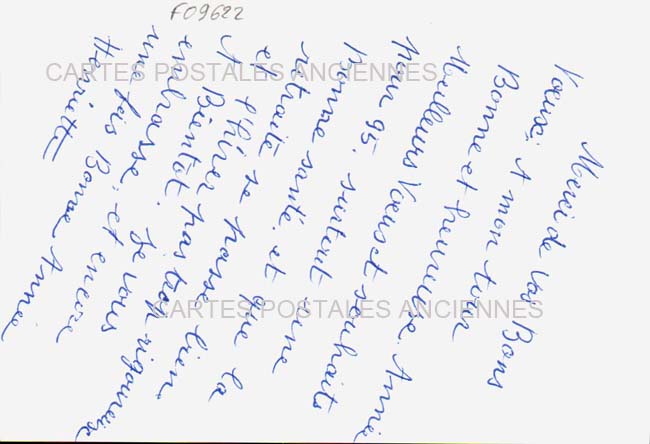 F09622
Merci de vos Bons
Voeux; A mon tour
Bonne et heureuse Année
Meilleurs Voeux et souhaits
Pour 95. surtout une
Bonne santé. et que la
retraite se passe bien
et l'hiver pas trop rigoureux
A Bientôt. Je vous
embrasse, et encore
une fois Bonne Année
Henriette
CARTES POSTALES ANCIENNES
CARTES POSTALES ANCIENNES